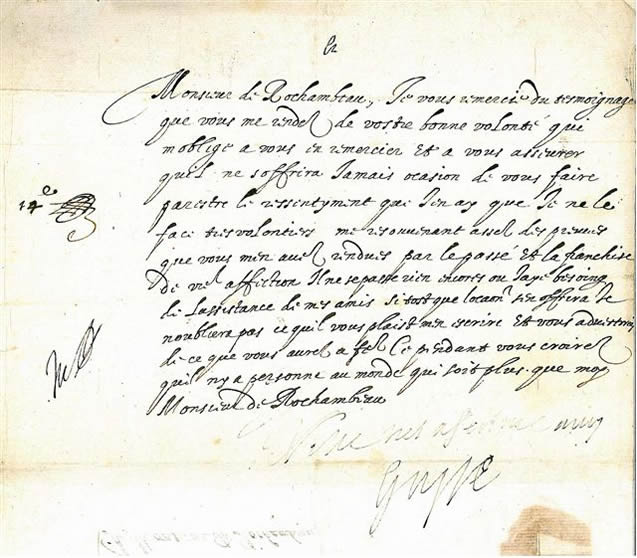 Monsieur de Rochambeau, Je vous remercie du tesmoignage
que vous me rendes de vostre bonne volonté qui
moblige a vous en remercier Et a vous asseurer
quil ne soffrira Jamais ocasion de vous faire
parestre le ressentyment que Jen ay que Je ne le
face tresvolontiers me resouvenant asses des preuves
que vous men aves rendues par le passé Et la franchise
de vre affiction Il ne se passe rien encores ou Jaye besoing
de lassistance de mes amis si tost que locaon sen offrira Je
noubliera pas ce quil vous plaist men escrire Et vous advertirai
de ce que vous aures a fe Ce pendant vous croires
quil ny a personne au monde qui soit plus que moy
Monsieur de Rochambeau
Vostre amy
14e